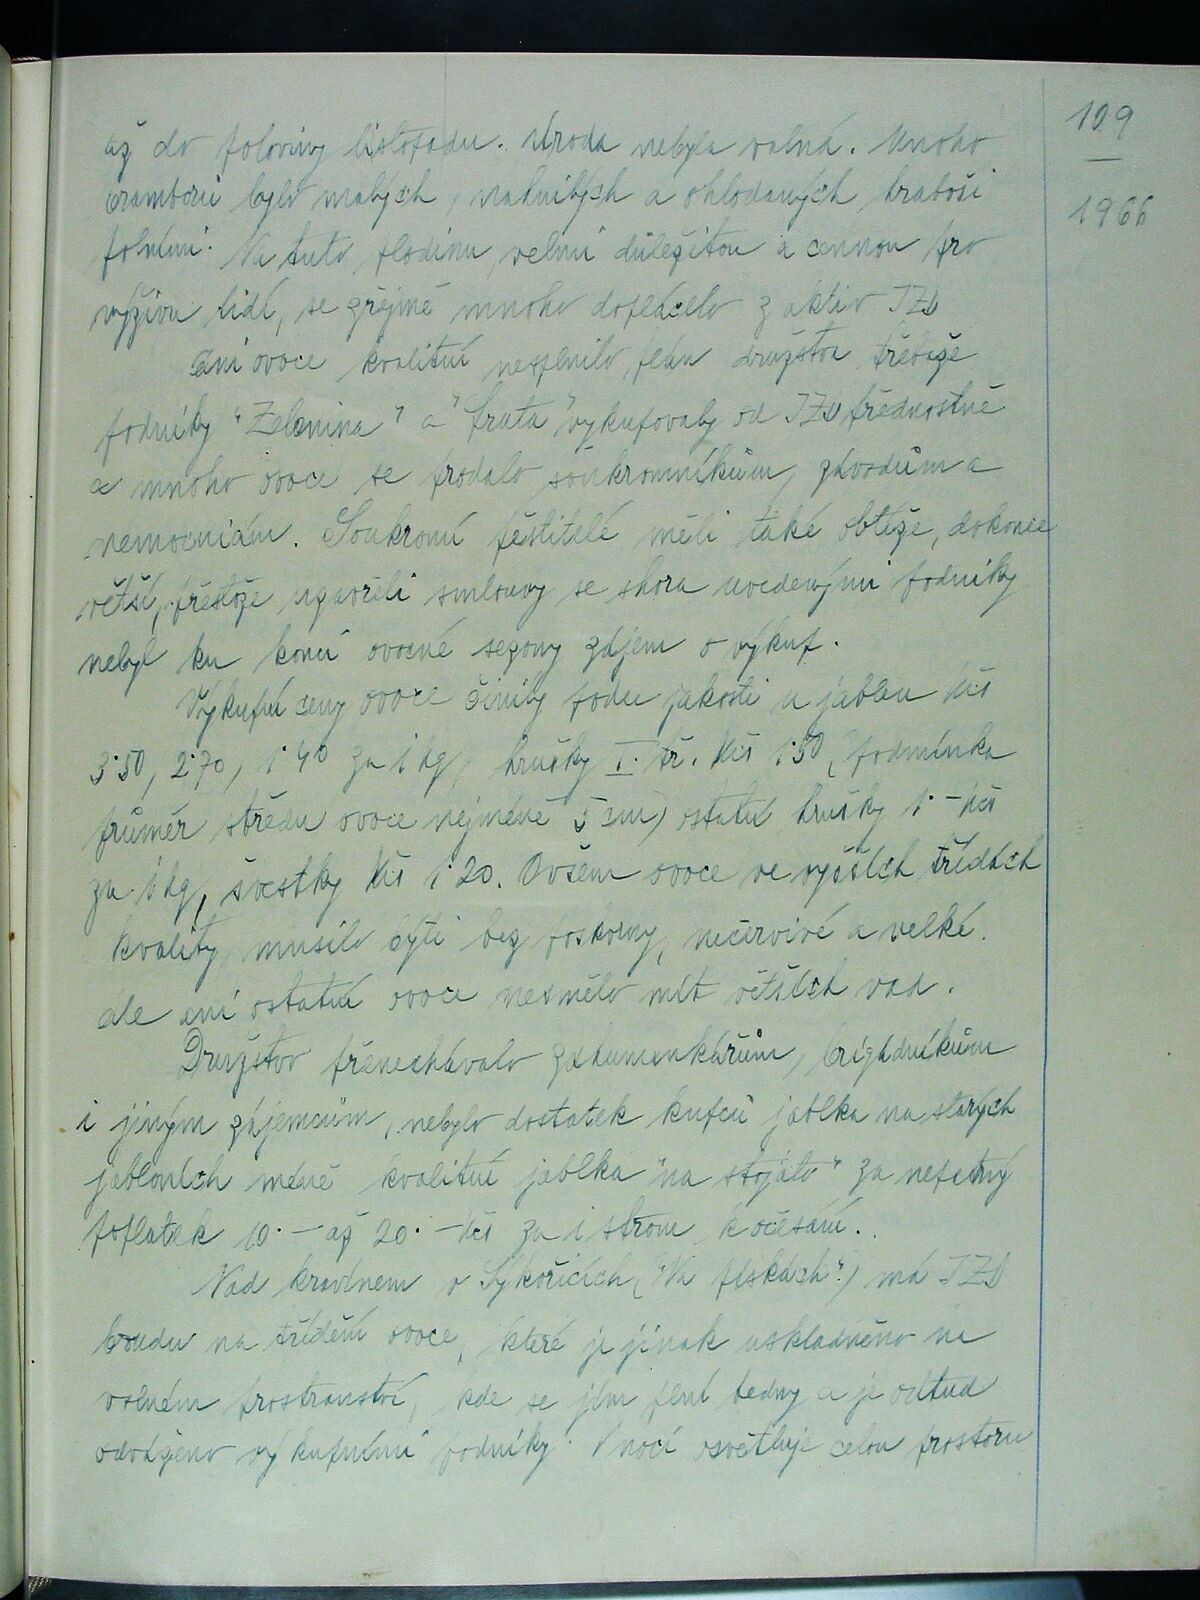 109
1966
až do poloviny listopadu. Úroda nebyla valná. Mnoho
bramborů bylo malých, nahnilých a ohlodaných hraboši
polními. Na tuto plodinu, velmi důležitou a cennou pro
výživu lidí, se zřejmě mnoho doplácelo z aktiv JZD
Ani ovoce kvalitní nesplnilo plán družstva třebaže
podniky "Zelenina" a "Fruta" vykupovaly od JZD přednostně
a mnoho ovoce se prodalo soukromníkům, závodům a
nemocnicím. Soukromí pěstitelé měli také obtíže, dokonce
větší, přestože uzavřeli smlouvy se shora uvedenými podniky
nebyl ku konci ovocné sezony zájem o výkup.
Výkupní ceny ovoce činily podle jakosti u jablek Kčs
3·50, 2·70, 1·40 za 1 kg, hrušky I. tř. Kčs 1·50, (podmínka
průměr středu ovoce nejméně 5 cm) ostatní hrušky 1·– Kčs
za 1 kg, švestky Kčs 1·20. Ovšem ovoce ve vyšších třídách
kvality, musilo býti bez poskvrny, nečervivé a velké.
ale ani ostatní ovoce nesmělo mít větších vad.
Družstvo přenechávalo záhumenkářům, brigádníkům
i jiným zájemcům, nebylo dostatek kupců jablka na starých
jabloních méně kvalitní jablka "na stojato" za nepatrný
poplatek 10·– až 20·– Kčs za 1 strom k očesání.
Nad kravínem v Sýkořicích ("Na pískách") má JZD
boudu na třídění ovoce, které je jinak uskladněno na
volném prostranství, kde se jím plní bedny a je odtud
odváženo výkupními podniky. V noci osvětluje celou prostoru